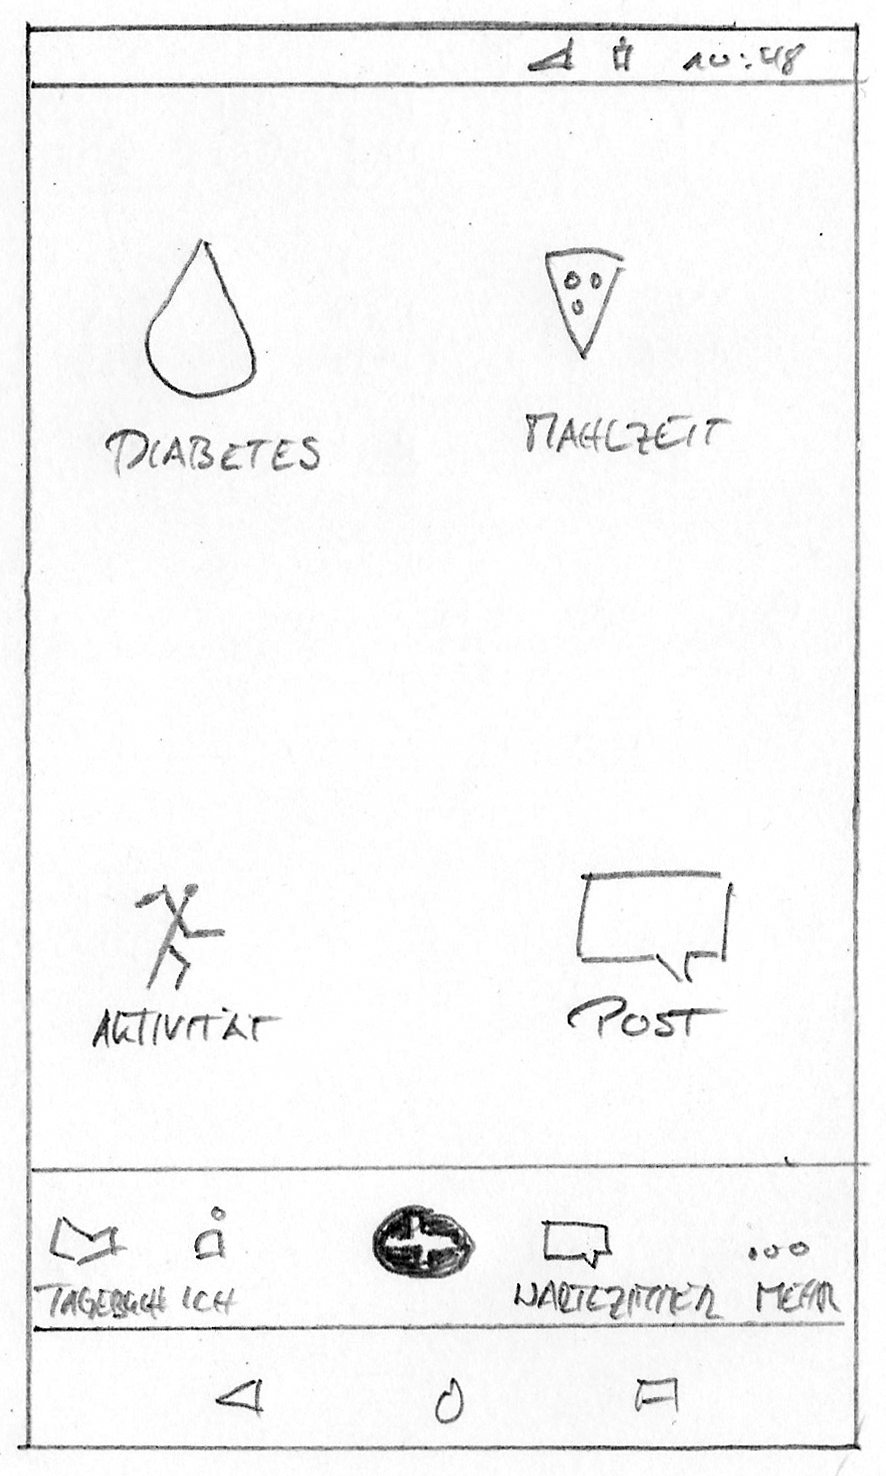 10:48
DIABETES
MAHLZEIT
AKTIVITÄT
POST
TAGEBUCH ICH WARTEZIMMER MEHR